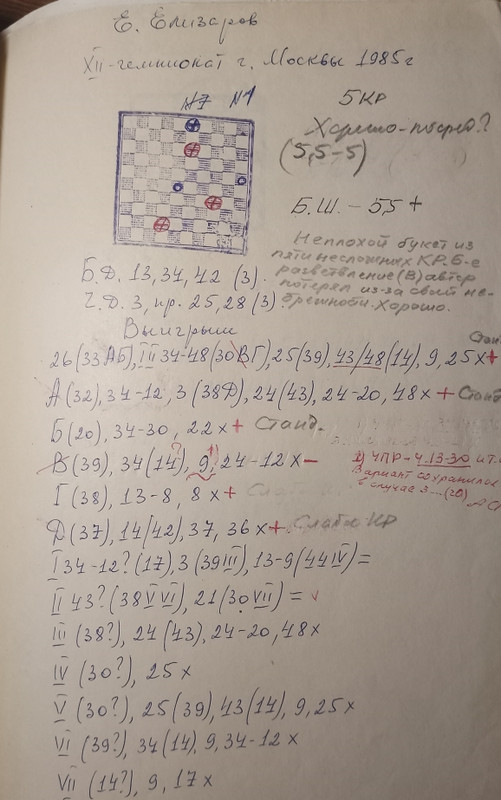 Е. Елизаров
XII-чемпионат г. Москвы 1985г
№7 №1
5 КР
Хорошо-
(5,5-5)
Б.Ш. - 5,5 +
Неплохой букет из
пяти несложных КР. Б-е
разветвление (В) автор
потерял из-за своей не-
брежности. Хорошо.
Б.Д. 13, 34, 42 (3).
Ч.Д. 3, пр. 25, 28 (3)
Выигрыш
Станд
26(33АБ), III 34-48(30ВГ), 25(39), 43/48(14), 9, 25х+
А(32), 34-12, 3(38Д), 24(43), 24-20, 48х + Станд
Б(20), 34-30, 22х + Станд.
В(39), 34(14), 9, 24-12х -
1) ЧПР - 4.13-30 и т.
Вариант сохранился
в случае 3...(20)
Г(38), 13-8, 8х +
Д(37), 14(42), 37, 36х + Слабая КР
I 34-12? (17), 3(39III), 13-9(44IV) =
II 43? (38V VI), 21(30VII) =
III (38?), 24(43), 24-20, 48х
IV (30?), 25х
V (30?), 25(39), 43(14), 9, 25х
VI (39?), 34(14), 9, 34-12х
VII (14?), 9, 17х